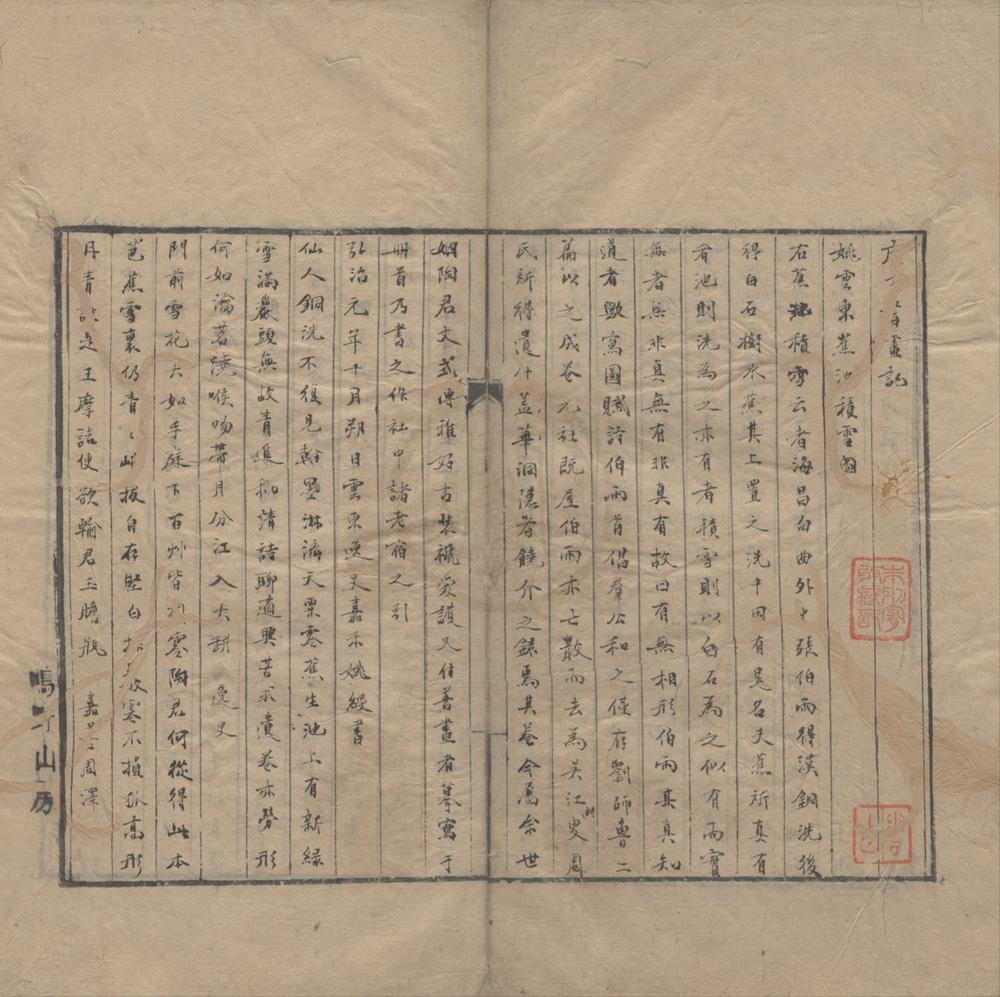 畫記
姚雲東蕉池積雪圖
右蕉池積雪云者海昌勾曲外史張伯雨得漢銅洗後
得白石樹水蕉其上置之洗中因有是名夫蕉祈真有
者池則洗為之亦有者積雪則以白石為之似有而實
無者無非真無有非真有故曰有無相形伯雨其真知
道者歟寫圖賦詩伯雨首倡羣公和之僅存劉師魯二
篇以之成卷九社既屋伯雨亦亡散而去為吳江史周
氏所得遺什蓋華洞隱者饒介之錄焉其卷今為余世
姻陶君文式博雅好古裝褫愛護又任善畫者摹寫于
冊首乃書之作社中諸老宿之引
弘治元年十月朔日雲東逸史嘉禾姚綬書
仙人銅洗不復見翰墨淋漓天粟零蕉生池上有新綠
雪滿巖頭無故青進和清詩聊適興苦求賞卷亦勞形
何如瀹茗澆喉吻帶月分江入大缾 逸史
門前雪花大如手庭下百艸皆凋零陶君何從得此本
芭蕉雪裏仍青〻㟁拔自存堅白歲寒不損孤高形
丹青王摩詰便欲輸君玉膽瓶 嘉周澤
鳴山房